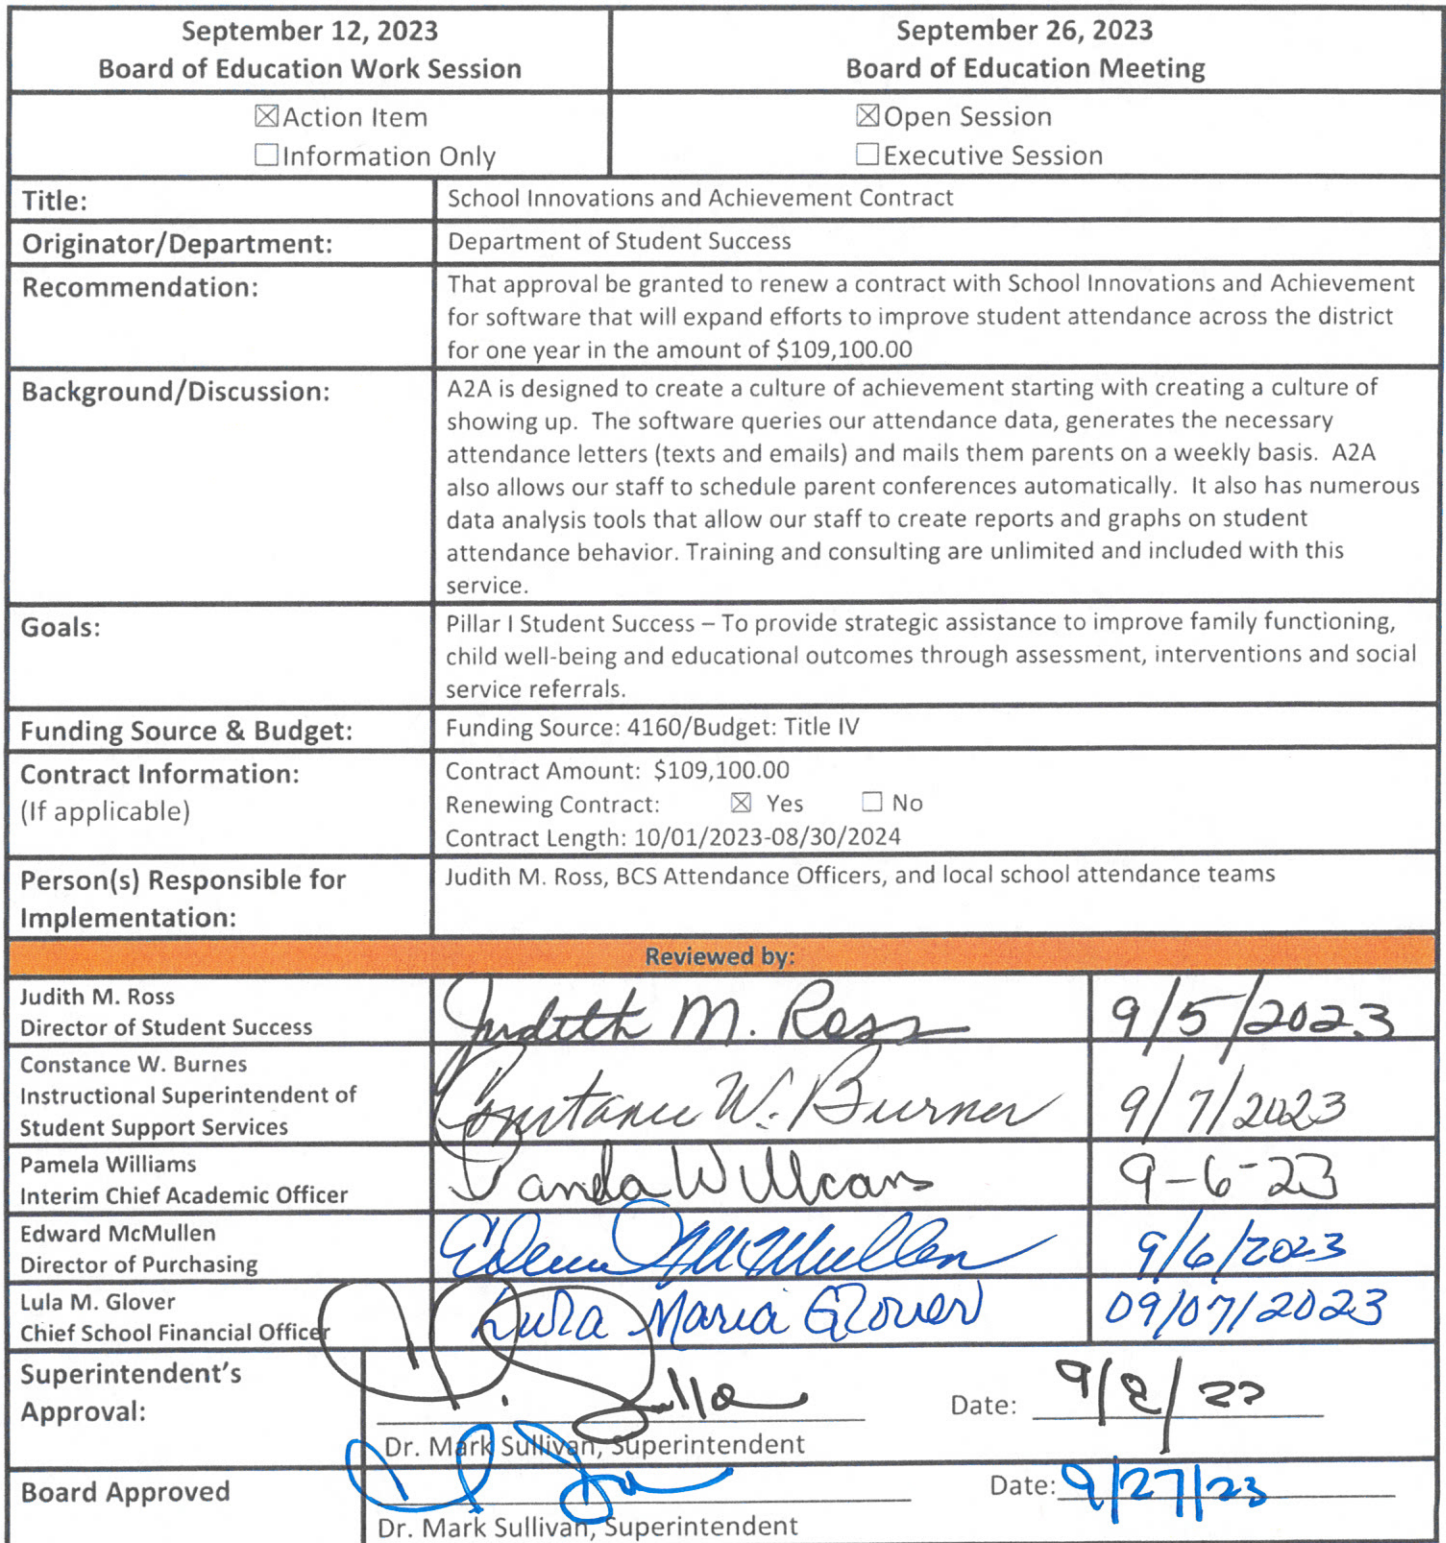 September 12, 2023
Board of Education Work Session
September 26, 2023
Board of Education Meeting
☒Action Item
☐Information Only
☒Open Session
☐Executive Session
Title:
School Innovations and Achievement Contract
Originator/Department:
Department of Student Success
Recommendation:
That approval be granted to renew a contract with School Innovations and Achievement
for software that will expand efforts to improve student attendance across the district
for one year in the amount of $109,100.00
Background/Discussion:
A2A is designed to create a culture of achievement starting with creating a culture of
showing up. The software queries our attendance data, generates the necessary
attendance letters (texts and emails) and mails them parents on a weekly basis. A2A
also allows our staff to schedule parent conferences automatically. It also has numerous
data analysis tools that allow our staff to create reports and graphs on student
attendance behavior. Training and consulting are unlimited and included with this
service.
Goals:
Pillar I Student Success – To provide strategic assistance to improve family functioning,
child well-being and educational outcomes through assessment, interventions and social
service referrals.
Funding Source & Budget:
Funding Source: 4160/Budget: Title IV
Contract Information:
(If applicable)
Contract Amount: $109,100.00
Renewing Contract: ☒ Yes ☐ No
Contract Length: 10/01/2023-08/30/2024
Person(s) Responsible for
Implementation:
Judith M. Ross, BCS Attendance Officers, and local school attendance teams
Reviewed by:
Judith M. Ross
Director of Student Success
Judith M. Ross
9/5/2023
Constance W. Burnes
Instructional Superintendent of
Student Support Services
Constance W. Burnes
9/7/2023
Pamela Williams
Interim Chief Academic Officer
Pamela Williams
9-6-23
Edward McMullen
Director of Purchasing
McMullen
9/6/2023
Lula M. Glover
Chief School Financial Officer
Lula Maria Glover
09/07/2023
Superintendent's
Approval:
Date:
Dr. Mark Sullivan, Superintendent
Board Approved
Date: 9/27/23
Dr. Mark Sullivan, Superintendent